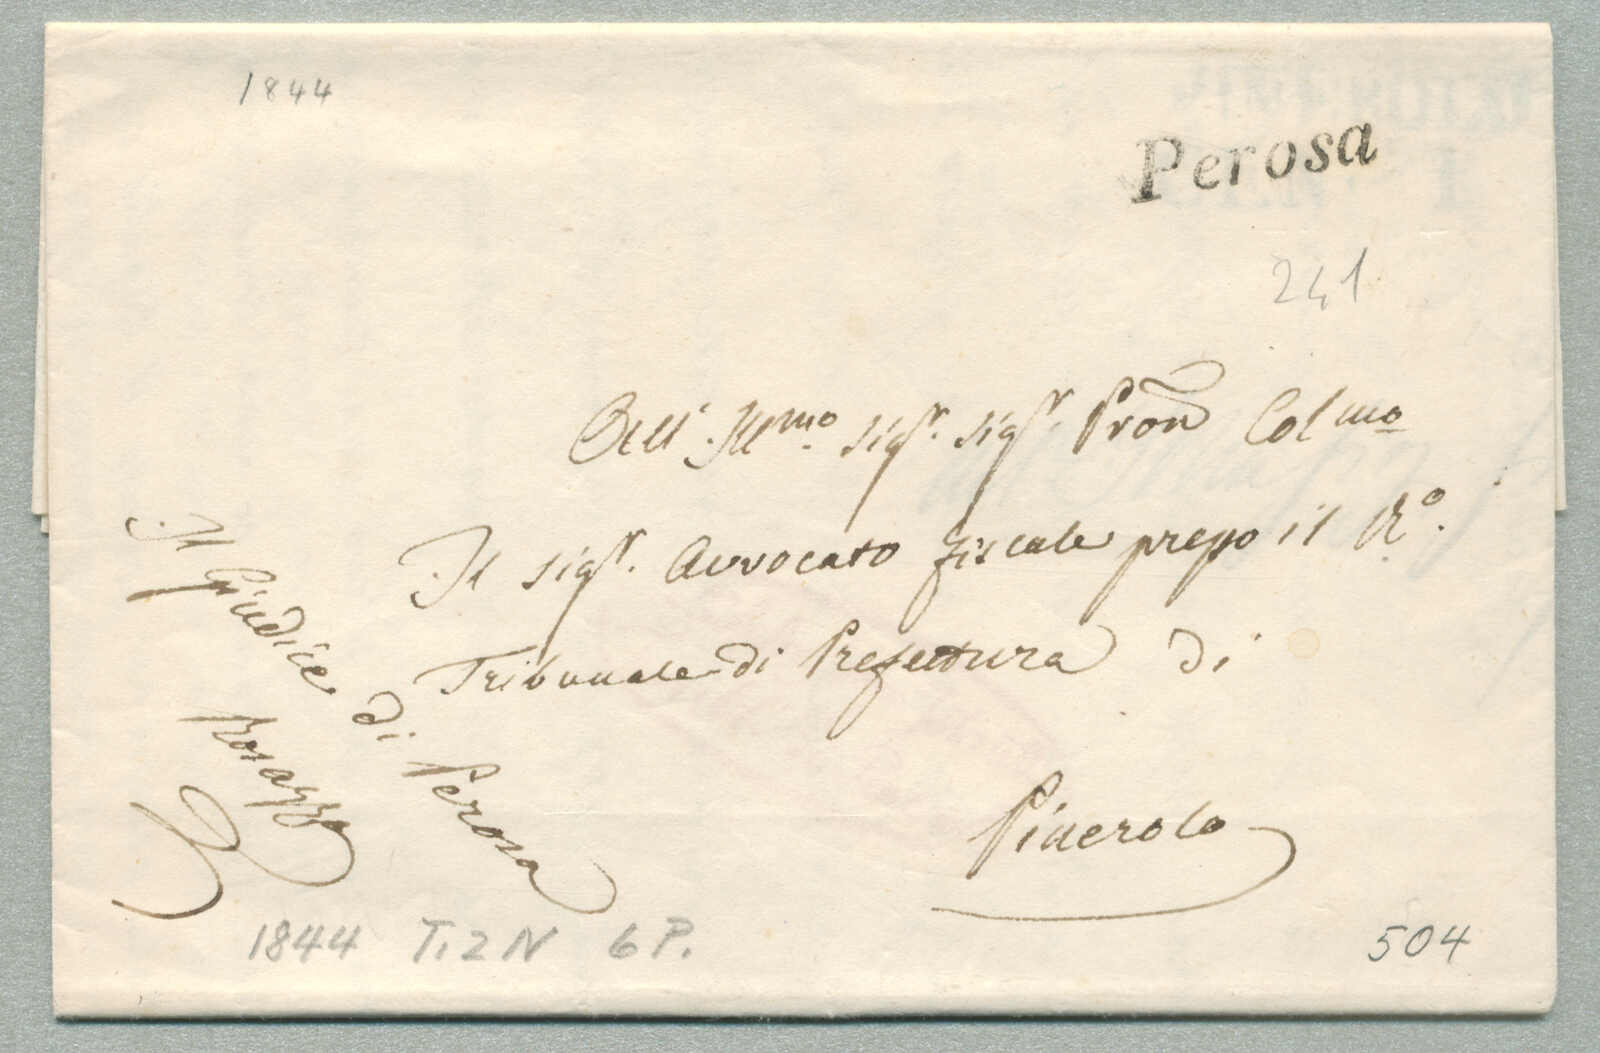 1844
Perosa
241
All' Ill.mo Sig.r Sig.r Pron Colmo
Il Sig.r Avvocato fiscale presso il R.o
Tribunale di Prefettura di
Pinerolo
Il Giudice di Perosa
1844 T.2N 6P.
504